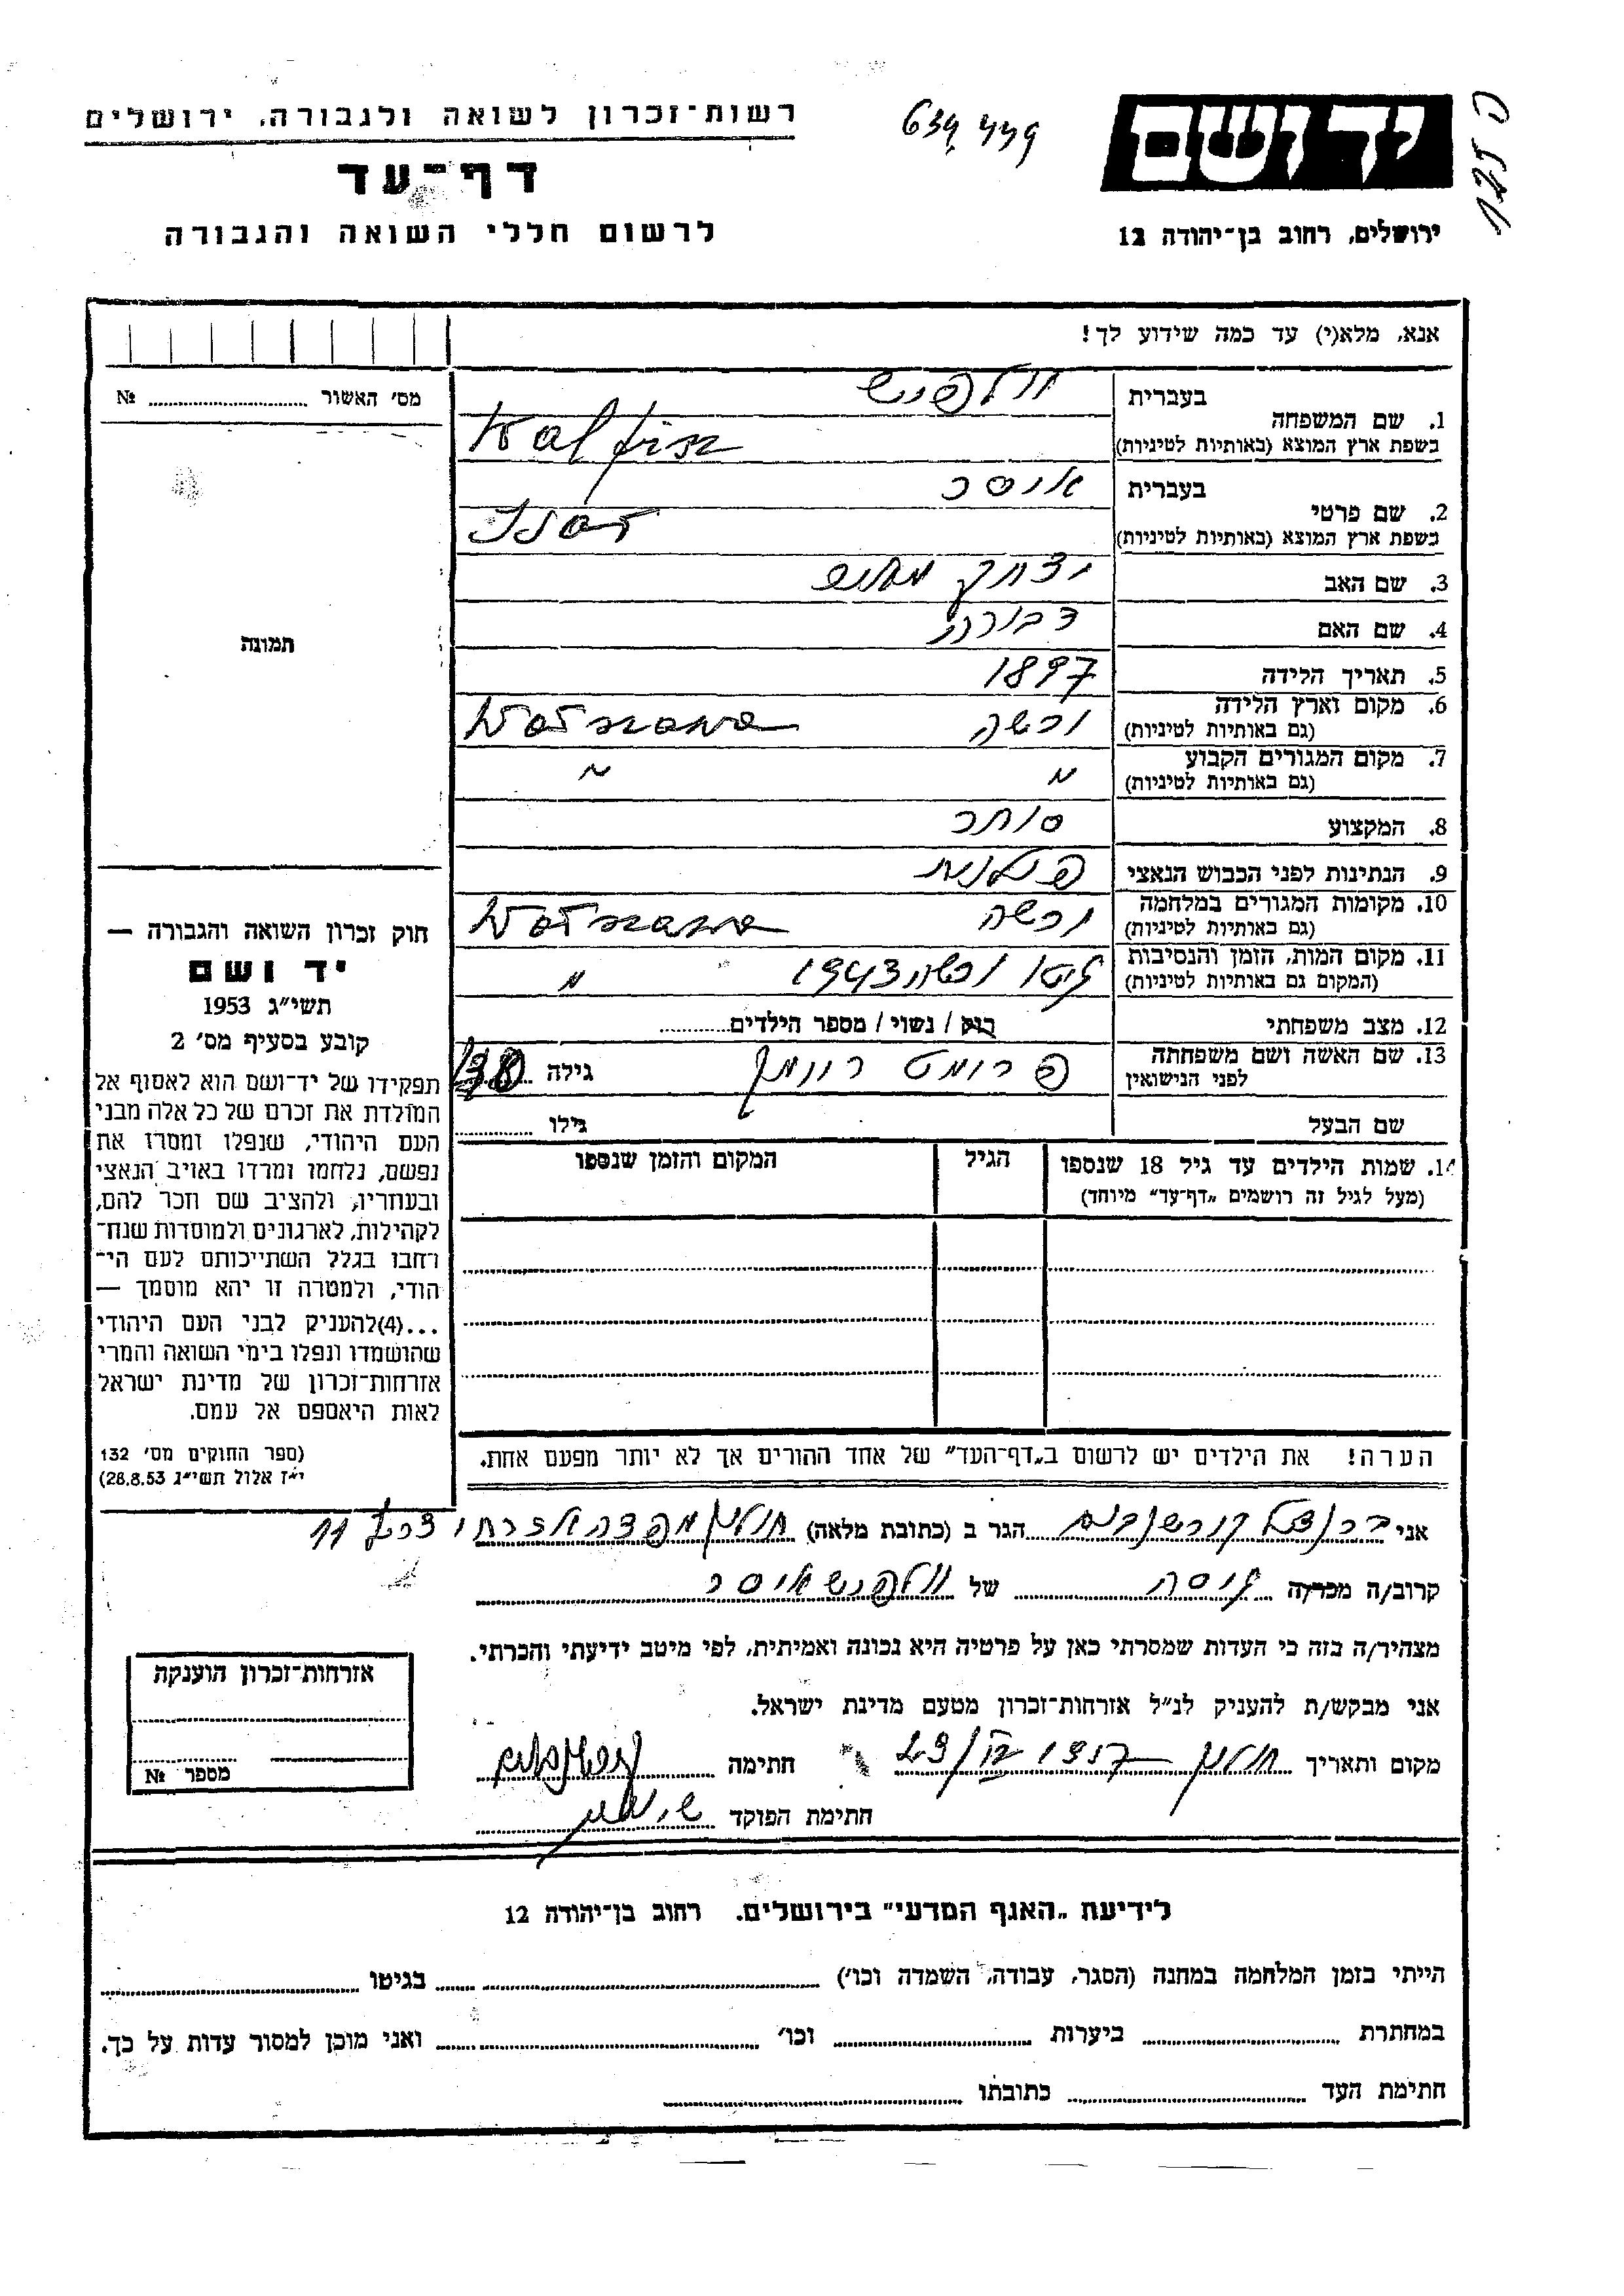 רשות־זכרון לשואה ולגבורה, ירושלים
דף־עד
לרשום חללי השואה והגבורה
יד ושם
ירושלים, רחוב בן־יהודה 12
אנא, מלא(י) עד כמה שידוע לך!
מס' האשור № 
1. שם המשפחה
בעברית
בשפת ארץ המוצא (באותיות לטיניות)
2. שם פרטי
בעברית איסר
בשפת ארץ המוצא (באותיות לטיניות)
3. שם האב יצחק
4. שם האם דבורה
5. תאריך הלידה 1897
6. מקום וארץ הלידה ורשה Warszawa
(גם באותיות לטיניות)
7. מקום המגורים הקבוע " "
(גם באותיות לטיניות)
8. המקצוע סוחר
9. הנתינות לפני הכבוש הנאצי פולנית
10. מקומות המגורים במלחמה ורשה Warszawa
(גם באותיות לטיניות)
11. מקום המות, הזמן והנסיבות גיטו ורשה 1943 "
(המקום גם באותיות לטיניות)
12. מצב משפחתי רוק / נשוי / מספר הילדים
13. שם האשה ושם משפחתה גילה 38
לפני הנישואין
שם הבעל גילו
14. שמות הילדים עד גיל 18 שנספו הגיל המקום והזמן שנספו
(מעל לגיל זה רושמים „דף־עד" מיוחד)
תמונה
חוק זכרון השואה והגבורה —
יד ושם
תשי״ג 1953
קובע בסעיף מס' 2
תפקידו של יד־ושם הוא לאסוף אל
המולדת את זכרם של כל אלה מבני
העם היהודי, שנפלו ומסרו את
נפשם, נלחמו ומרדו באויב הנאצי
ובעוזריו, ולהציב שם וזכר להם,
לקהילות, לארגונים ולמוסדות שנח־
רחבו בגלל השתייכותם לעם הי־
הודי, ולמטרה זו יהא מוסמך —
...(4)להעניק לבני העם היהודי
שהושמדו ונפלו בימי השואה והמרי
אזרחות־זכרון של מדינת ישראל
לאות היאספם אל עמם.
(ספר החוקים מס' 132
י״ז אלול תשי״ג 28.8.53)
הערה! את הילדים יש לרשום ב„דף־העד" של אחד ההורים אך לא יותר מפעם אחת.
אני הגר ב (כתובת מלאה) חולון 11
קרוב/ה מכר/ה גיסה של איסר
מצהיר/ה בזה כי העדות שמסרתי כאן על פרטיה היא נכונה ואמיתית, לפי מיטב ידיעתי והכרתי.
אני מבקש/ת להעניק לנ״ל אזרחות־זכרון מטעם מדינת ישראל.
מקום ותאריך חולון חתימה
חתימת הפוקד
אזרחות־זכרון הוענקה
מספר №
לידיעת „האגף המדעי" בירושלים. רחוב בן־יהודה 12
הייתי בזמן המלחמה במחנה (הסגר, עבודה, השמדה וכו') בגיטו
במחתרת ביערות וכו' ואני מוכן למסור עדות על כך.
חתימת העד כתובתו